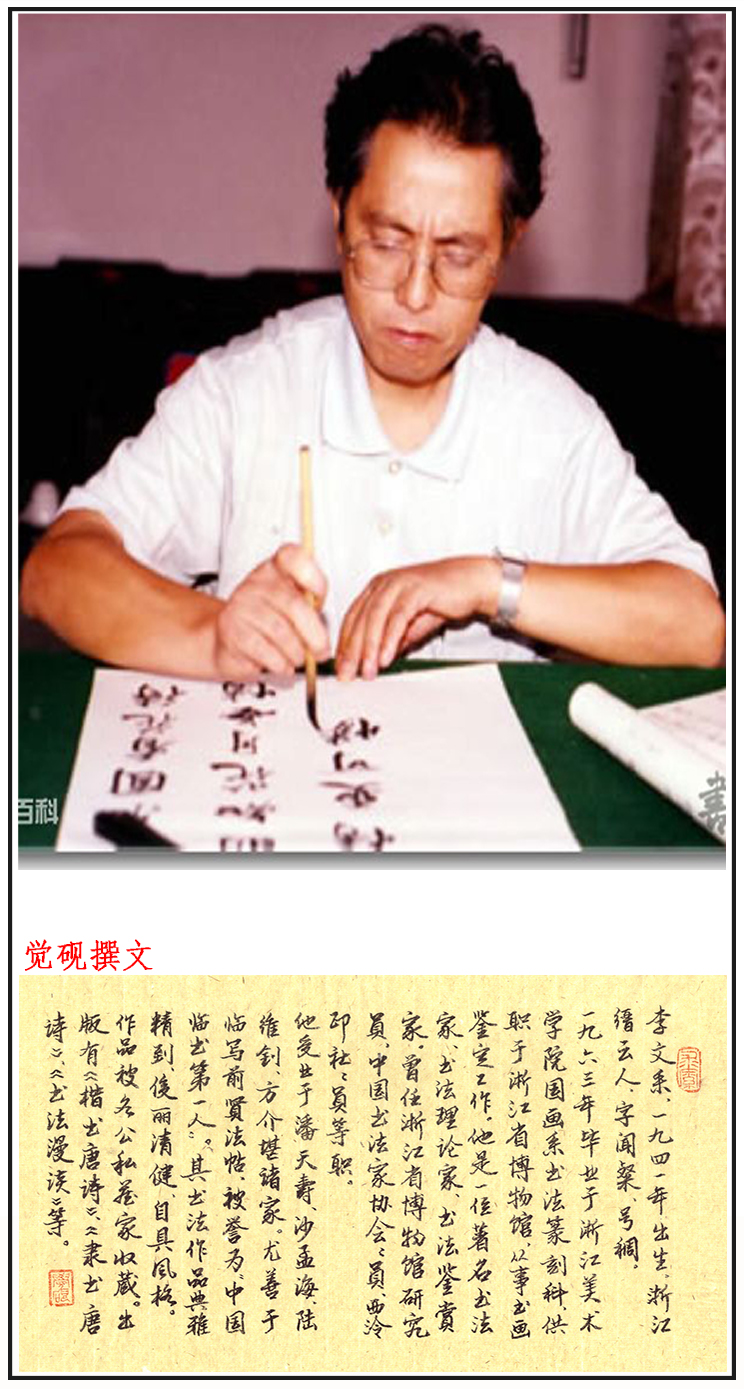 百科
觉砚撰文
李文采、一九四一年出生。浙江
缙云人、字闻粲、号稠。
一九六三年毕业于浙江美术
学院国画系书法篆刻科、供
职于浙江省博物馆、从事书画
鉴定工作。他是一位著名书法
家、书法理论家、书法鉴赏
家。曾任浙江省博物馆研究
员、中国书法家协会会员、西泠
印社社员等职。
他受业于潘天寿、沙孟海、陆
维钊、方介堪诸家。尤善于
临写前贤法帖、被誉为“中国
临书第一人”。其书法作品典雅
精到、俊丽清健、自具风格。
作品被各公私蔵家收蔵。出
版有《楷书唐诗》、《隶书唐
诗》、《书法漫谈》等。